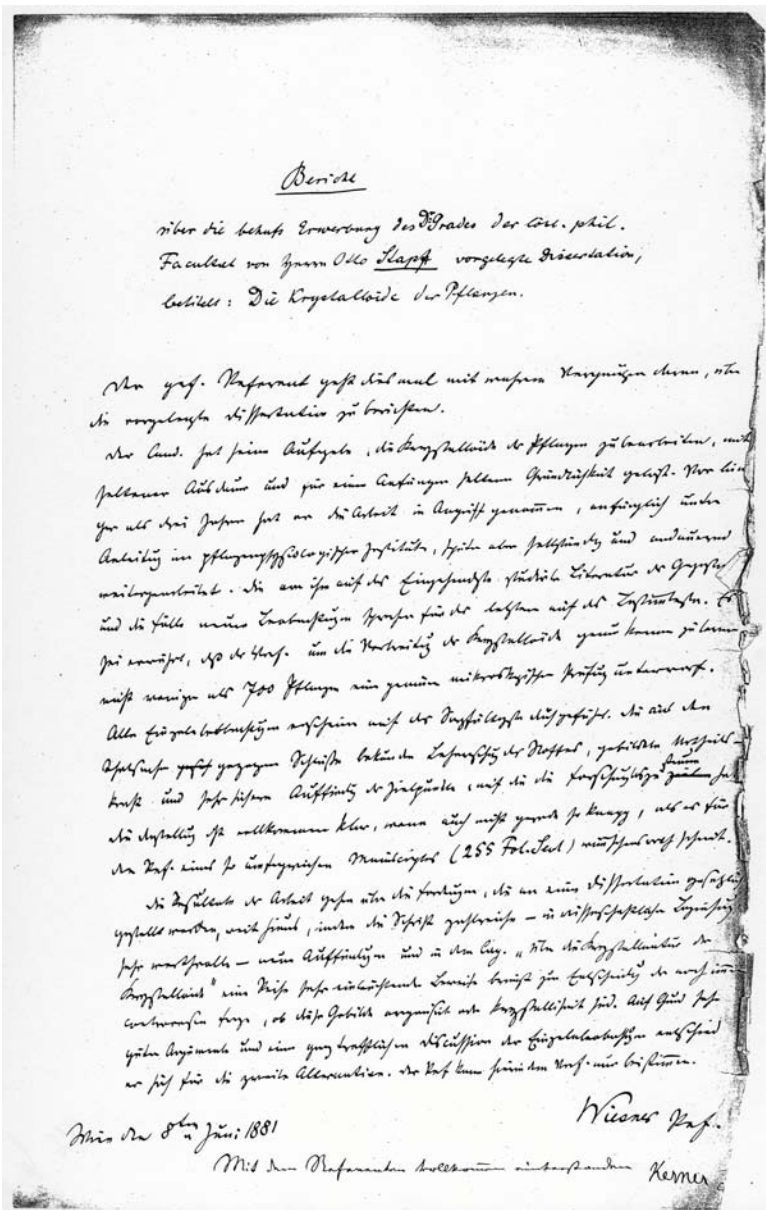 Bericht
über die behufs Erwerbung des Dr Grades der löbl. phil.
Facultät von Herrn Otto Stapf vorgelegte Dissertation,
betitelt: Die Krystalloide der Pflanzen.
Der gef. Referent geht diesmal mit wahrem Vergnügen daran, über
die vorgelegte Dissertation zu berichten.
Der Cand. hat seine Aufgabe, die Krystalloide der Pflanzen zu bearbeiten, mit
seltener Ausdauer und für einen Anfänger seltener Gründlichkeit gelöst. Vor län
ger als drei Jahren hat er die Arbeit in Angriff genommen, anfänglich unter
Anleitung im pflanzenphysiologischen Institute, später aber selbständig und andauernd
weitergearbeitet. Die von ihm auf das Eingehendste studirte Literatur des Gegenstan
und die Fülle neuer Beobachtungen sprechen für das letztere auf das Bestimmteste. Es
sei erwähnt, daß der Verf. um die Verbreitung der Krystalloide genau kennen zu lernen
nicht weniger als 700 Pflanzen einer genauen mikroskopischen Prüfung unterwarf.
Alle Einzelbeobachtungen erscheinen auf das Sorgfältigste durchgeführt. Die aus den
Thatsachen gezogenen Schlüsse bekunden Beherrschung des Stoffes, gebildete Urtheils-
kraft und sehr sichere Auffindung der Zielpunkte, auf die die Forschung zu hat
die Darstellung ist vollkommen klar, wenn auch nicht gerade so knapp, als es für
den Ref. eines so umfangreichen Manuscriptes (255 Fol.-Seit) wünschenswerth scheint.
Die Resultate der Arbeit gehen über die Forderungen, die an eine Dissertation gesetzlich
gestellt werden, weit hinaus, indem die Schrift zahlreiche – in wissenschaftlicher Beziehung
sehr werthvolle – neue Auffindungen und in dem Cap. „Über die Krystallnatur der
Krystalloide" eine Reihe sehr einleuchtender Beweise bringt zur Entscheidung der noch immer
controversen Frage, ob diese Gebilde organisirt oder krystallisirt sind. Auf Grund sehr
guter Argumente und einer ganz trefflichen Discussion der Einzelbeobachtungen entschied
er sich für die zweite Alternative. Der Ref kann hierin dem Verf. nur beistimmen.
Wien den 8ten Juni 1881
Wiesner Ref.
Mit dem Referenten vollkommen einverstanden Kerner